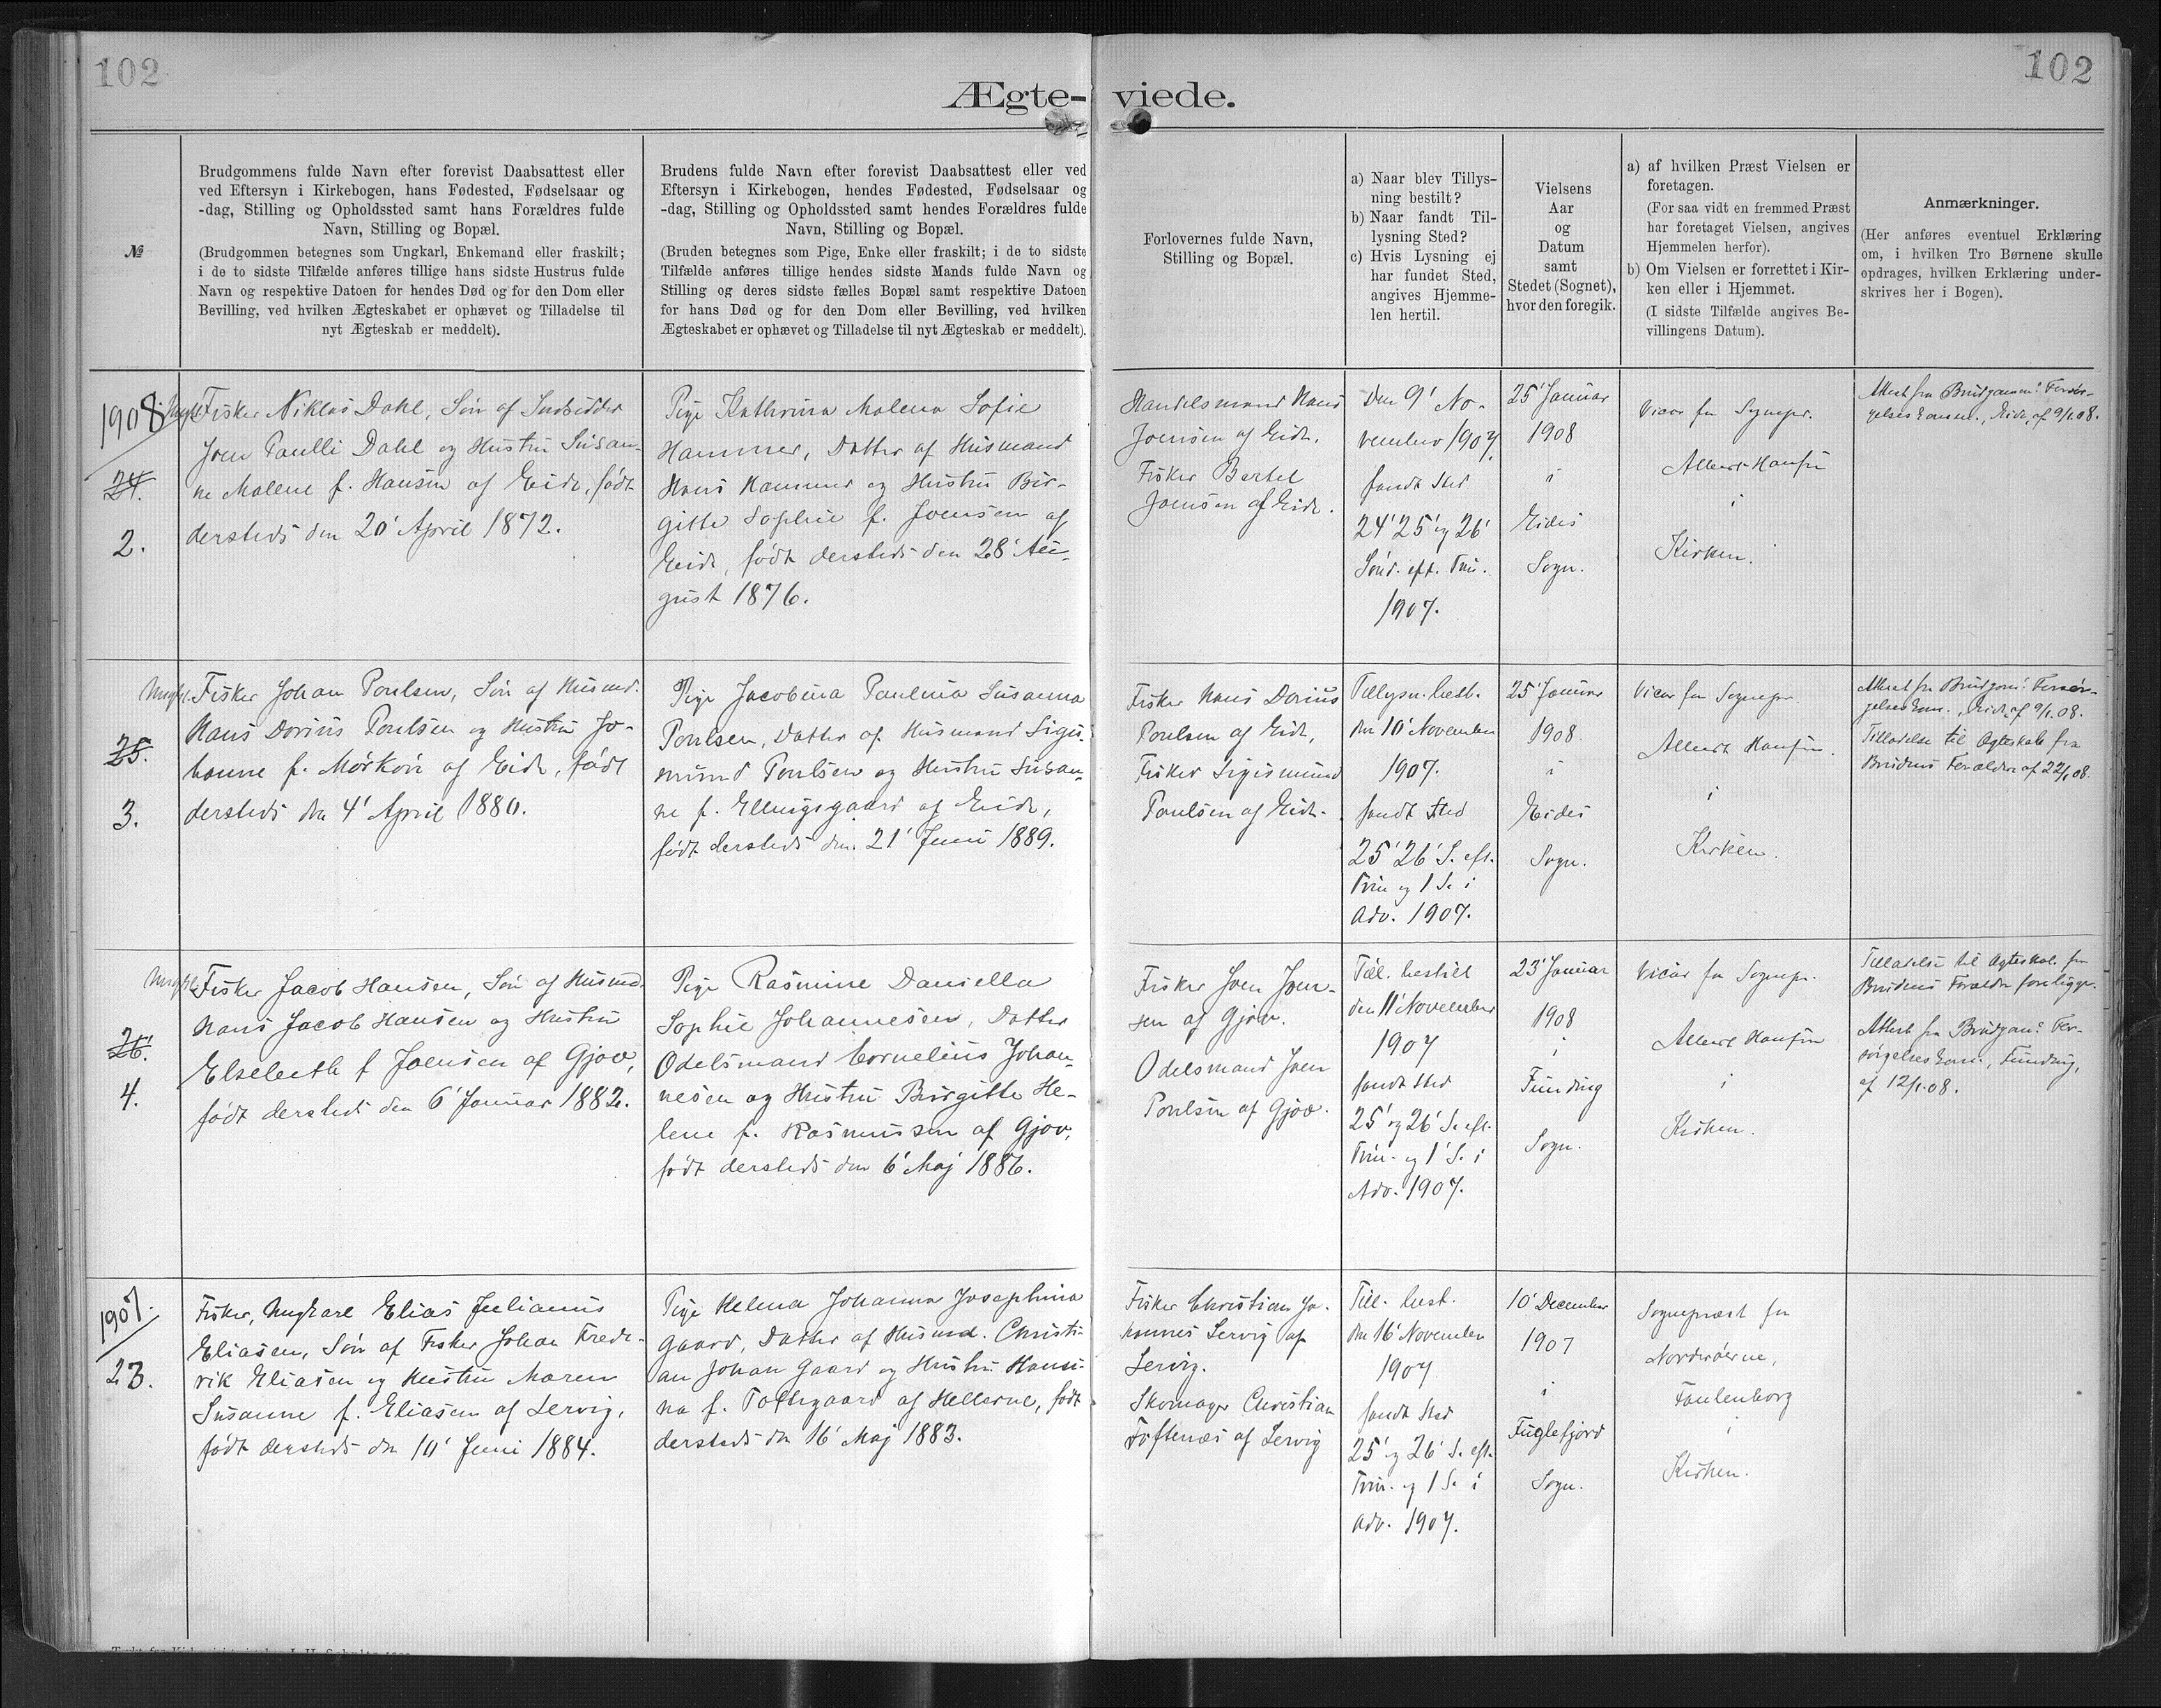 102
102
Ægte- viede.
№
Brudgommens fulde Navn efter forevist Daabsattest eller
ved Eftersyn i Kirkebogen, hans Fødested, Fødselsaar og
-dag, Stilling og Opholdssted samt hans Forældres fulde
Navn, Stilling og Bopæl.
(Brudgommen betegnes som Ungkarl, Enkemand eller fraskilt;
i de to sidste Tilfælde anføres tillige hans sidste Hustrus fulde
Navn og respektive Datoen for hendes Død og for den Dom eller
Bevilling, ved hvilken Ægteskabet er ophævet og Tilladelse til
nyt Ægteskab er meddelt).
Brudens fulde Navn efter forevist Daabsattest eller ved
Eftersyn i Kirkebogen, hendes Fødested, Fødselsaar og
-dag, Stilling og Opholdssted samt hendes Forældres fulde
Navn, Stilling og Bopæl.
(Bruden betegnes som Pige, Enke eller fraskilt; i de to sidste
Tilfælde anføres tillige hendes sidste Mands fulde Navn og
Stilling og deres sidste fælles Bopæl samt respektive Datoen
for hans Død og for den Dom eller Bevilling, ved hvilken
Ægteskabet er ophævet og Tilladelse til nyt Ægteskab er meddelt).
Forlovernes fulde Navn,
Stilling og Bopæl.
a) Naar blev Tillys-
ning bestilt?
b) Naar fandt Til-
lysning Sted?
c) Hvis Lysning ej
har fundet Sted,
angives Hjemme-
len hertil.
Vielsens
Aar
og
Datum
samt
Stedet (Sognet),
hvor den foregik.
a) af hvilken Præst Vielsen er
foretagen.
(For saa vidt en fremmed Præst
har foretaget Vielsen, angives
Hjemmelen herfor).
b) Om Vielsen er forrettet i Kir-
ken eller i Hjemmet.
(I sidste Tilfælde angives Be-
villingens Datum).
Anmærkninger.
(Her anføres eventuel Erklæring
om, i hvilken Tro Børnene skulle
opdrages, hvilken Erklæring under-
skrives her i Bogen).
1908
24.
2.
Ungk. Fisker Niklas Dahl, Søn af Indsidder
Joen Paulli Dahl og Hustru Susan-
ne Malene f. Hansen af Eide, født
dersteds den 20' April 1872.
Pige Kathrina Malena Sofie
Hammer, Datter af Husmand
Hans Hammer og Hustru Bir-
gitte Sophie f. Joensen af
Eide, født dersteds den 28' Au-
gust 1876.
Handelsmand Hans
Joensen af Eide.
Fisker Bertel
Joensen af Eide.
Den 9' No-
vember 1907.
fandt Sted
24' 25' og 26'
Sønd. eft. Trin.
1907.
25' Januar
1908
i
Eides
Sogn.
Vicar for Sognepr.
Albert Hansen
i
Kirken.
Attest fra Brudgommens Forsør-
gelses , Eide, af 9/1.08.
25.
3.
Ungk. Fisker Johan Poulsen, Søn af Husmd.
Hans Dorius Poulsen og Hustru Jo-
hanne f. Mørkøre af Eide, født
dersteds den 4' April 1880.
Pige Jacobina Paulina Susanna
Poulsen, Datter af Husmand Sigis-
mund Poulsen og Hustru Susan-
ne f. Ellingsgaard af Eide,
født dersteds den 21' Juni 1889.
Fisker Hans Dorius
Poulsen af Eide,
Fisker Sigismund
Poulsen af Eide.
Tillysn. best.
den 10' November
1907.
fandt Sted
25' 26' S. eft.
Trin og 1 S. i
Adv. 1907.
25' Januar
1908
i
Eides
Sogn.
Vicar for Sognepr.
Albert Hansen.
i
Kirken.
Attest fra Brudgoms Forsør-
gelses , Eide, af 9/1.08.
Tilladelse til Ægteskab fra
Brudens Forældre af 22/1 08.
26.
4.
Ungk. Fisker Jacob Hansen, Søn af Husmd.
Hans Jacob Hansen og Hustru
Elsebeth f Joensen af Gjov,
født dersteds den 6' Januar 1882.
Pige Rasmine Daniella
Sophie Johannesen, Datter
Odelsmand Cornelius Johan-
nesen og Hustru Birgitte He-
lene f. Rasmussen af Gjov,
født dersteds den 6' Maj 1886.
Fisker Joen Joen-
sen af Gjov.
Odelsmand Joen
Poulsen af Gjov.
Till. bestilt
den 11' November
1907
fandt Sted
25' og 26' S. eft.
Trin. og 1' S. i
Adv. 1907.
23' Januar
1908
i
Funding
Sogn.
Vicar for Sognepr.
Albert Hansen
i
Kirken.
Tilladelse til Ægteskab fra
Brudens Forældre foreligger.
Attest fra Brudgoms For-
sørgelses , Funding,
af 12/1.08.
1907.
23.
Fisker, Ungkarl Elias Julianus
Eliasen, Søn af Fisker Johan Frede-
rik Eliasen og Hustru Maren
Susanne f. Eliasen af Lervig,
født dersteds den 10' Juni 1884.
Pige Helena Johanna Josephina
Gaard, Datter af Husmd. Christi-
an Johan Gaard og Hustru Hansi-
na f. Toftegaard af Hellerne, født
dersteds den 16' Maj 1883.
Fisker Christian Jo-
hannes Lervig af
Lervig.
Skomager Christian
Toftenæs af Lervig
Till. best.
den 16' November
1907
fandt Sted
25' og 26' S. eft.
Trin. og 1 S. i
Adv. 1907.
10' December
1907
i
Fuglefjord
Sogn.
Sognepræst for
Norderøerne,
Faulenborg
i
Kirken.